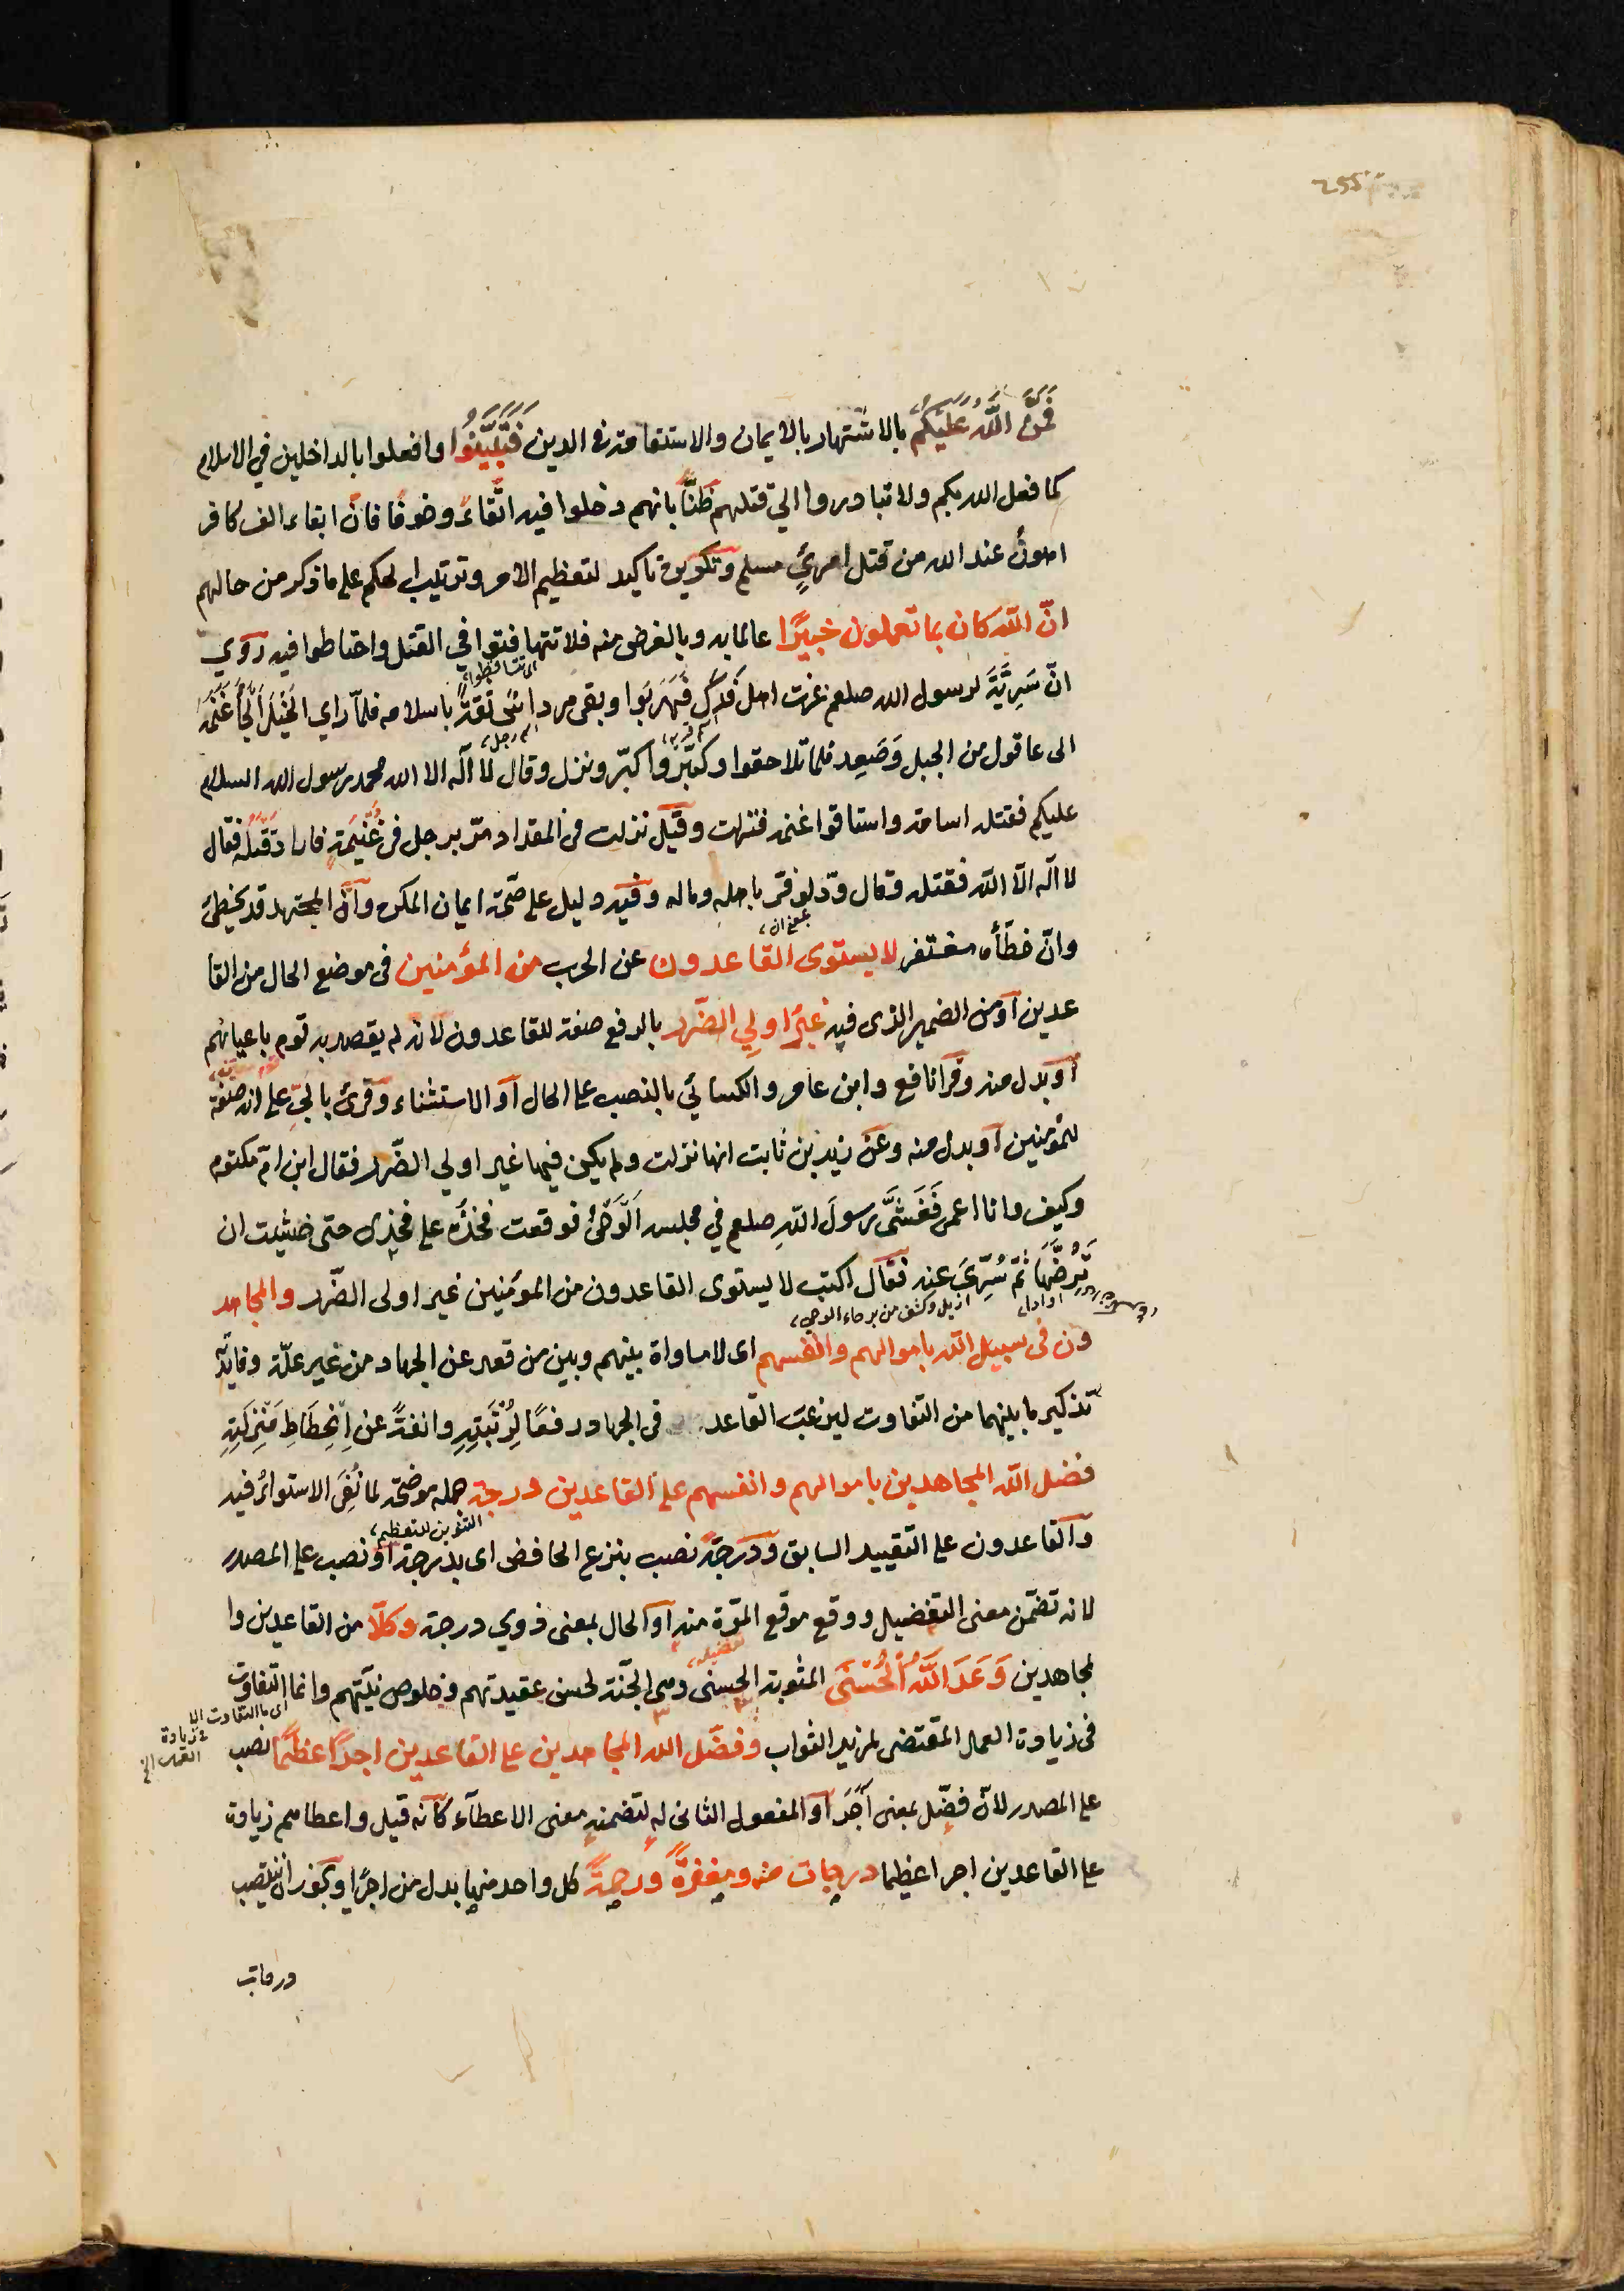 255
فَمَنَّ اللّٰهُ عَلَيْكُمْ بالاشتهار بالايمان والاستقامة فى الدين فَتَبَيَّنُوا وافعلوا بالداخلين في الاسلام
كما فعل الله بكم ولا تبادروا الي قتلهم ظنًّا بانهم دخلوا فيه اتّقاءً وخوفًا فانّ ابقاء الف كافر
اهونُ عند الله من قتل امرئٍ مسلم وتكريره تاكيد لتعظيم الامر وترتيب الحكم على ما ذكر من حالهم
انّ اللّٰه كان بما تعملون خبيرًا عالما به وبالغرض منه فلا تتهافتوا في القتل واحتاطوا فيه رُوي
اى تتساقطوا
انّ سَرِيَّةً لرسول الله صلعم غزت اهل فَدَكَ فَهَرَبُوا وبقى مرداسُ ثقةً باسلامه فلمّا راي الخَيْلَ اَلْجَأَ غَنَمَهُ
الى عاقول من الجبل وَصَعِد فلما تلاحقوا وكبّروا كبّر ونزل وقال لا اله الا الله محمد رسول الله السلام
عليكم فقتله اسامة واستاقوا غنمه فنزلت وقيل نزلت فى المقداد مرّ برجل فى غُنَيْمَةٍ فاراد قَتْلَهُ فقال
لا اله الّا اللّٰه فقتله وقال ودّ لو فرّ باهله وماله وفيه دليل على صحّة ايمان المكره وانّ المجتهد قد يخطئ
وانّ خطأه مغتفر لا يستوى القاعدون عن الحرب من المؤمنين فى موضع الحال من القا
عدين او من الضمير الذى فيه غيرُ اولي الضّرر بالرفع صفة للقاعدون لانه لم يقصد به قوم باعيانهم
او بدل منه وقرا نافع وابن عامر والكسائي بالنصب على الحال او الاستثناء وقرئ بالجرّ على انه صفة
للمؤمنين او بدل منه وعن زيد بن ثابت انها نزلت ولم يكن فيها غير اولي الضّرر فقال ابن امّ مكتوم
وكيف وانا اعمى فَغَشَّى رسولَ اللّٰهِ صلعم في مجلسه اَلْوَحْىُ فوقعت فَخْذُهُ على فخذى حتى خشيت ان
تَرُضَّهَا ثمّ سُرِّيَ عنه فقال اكتب لا يستوى القاعدون من المؤمنين غير اولى الضّرر والمجاهد
ازيل وكشف من برحاء الوحي
ون فى سبيل اللّٰه باموالهم وانفسهم اى لا مساواة بينهم وبين من قعد عن الجهاد من غير علّة وفايدته
تذكير ما بينهما من التفاوت ليرغب القاعد فى الجهاد رفعًا لِرُتْبَتِهِ وانفةً عن اِنْحِطَاطِ مَنْزِلَتِهِ
فضل اللّٰه المجاهدين باموالهم وانفسهم على القاعدين درجة جمله موضحة لما نُفِىَ الاستواءُ فيه
التنوين للتعظيم
والقاعدون على التقييد السابق ودرجةً نصب بنزع الخافض اى بدرجة او نصب على المصدر
لانه تضمّن معنى التفضيل ووقع موقع المرّة منه او الحال بمعنى ذوي درجة وكلّا من القاعدين وا
لمجاهدين وَعَدَ اللّٰهُ الْحُسْنَى المثوبة الحسنى وهى الجنّة لحسن عقيدتهم وخلوص نيّتهم وانما التفاوت
اى ما التفاوت الا
فى زيادة العمل المقتضى لمزيد الثواب وفضّل الله المجاهدين على القاعدين اجرًا عظيمًا نصب
على المصدر لانّ فضّل بمعنى اَجَرَ او المفعول الثانى له لتضمنه معنى الاعطاء كانّه قيل واعطاهم زيادة
على القاعدين اجرا عظيما درجات منه ومغفرةً ورحمةً كل واحد منها بدل من اجرًا ويجوز ان ينتصب
درجات